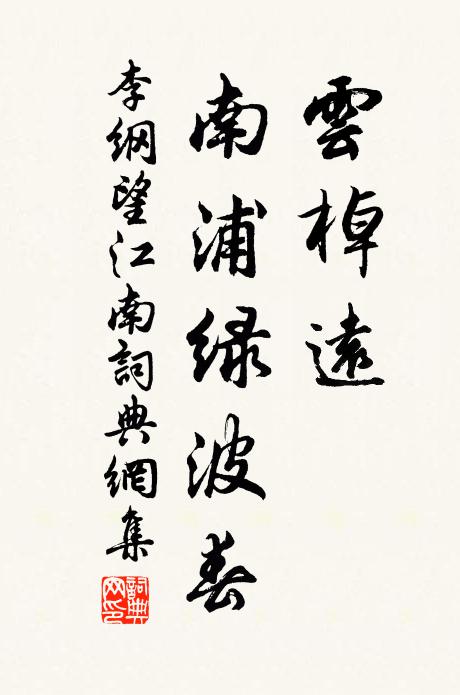 雲棹遠
南浦緑波春
李綱望江南詞典網集
詞典網印